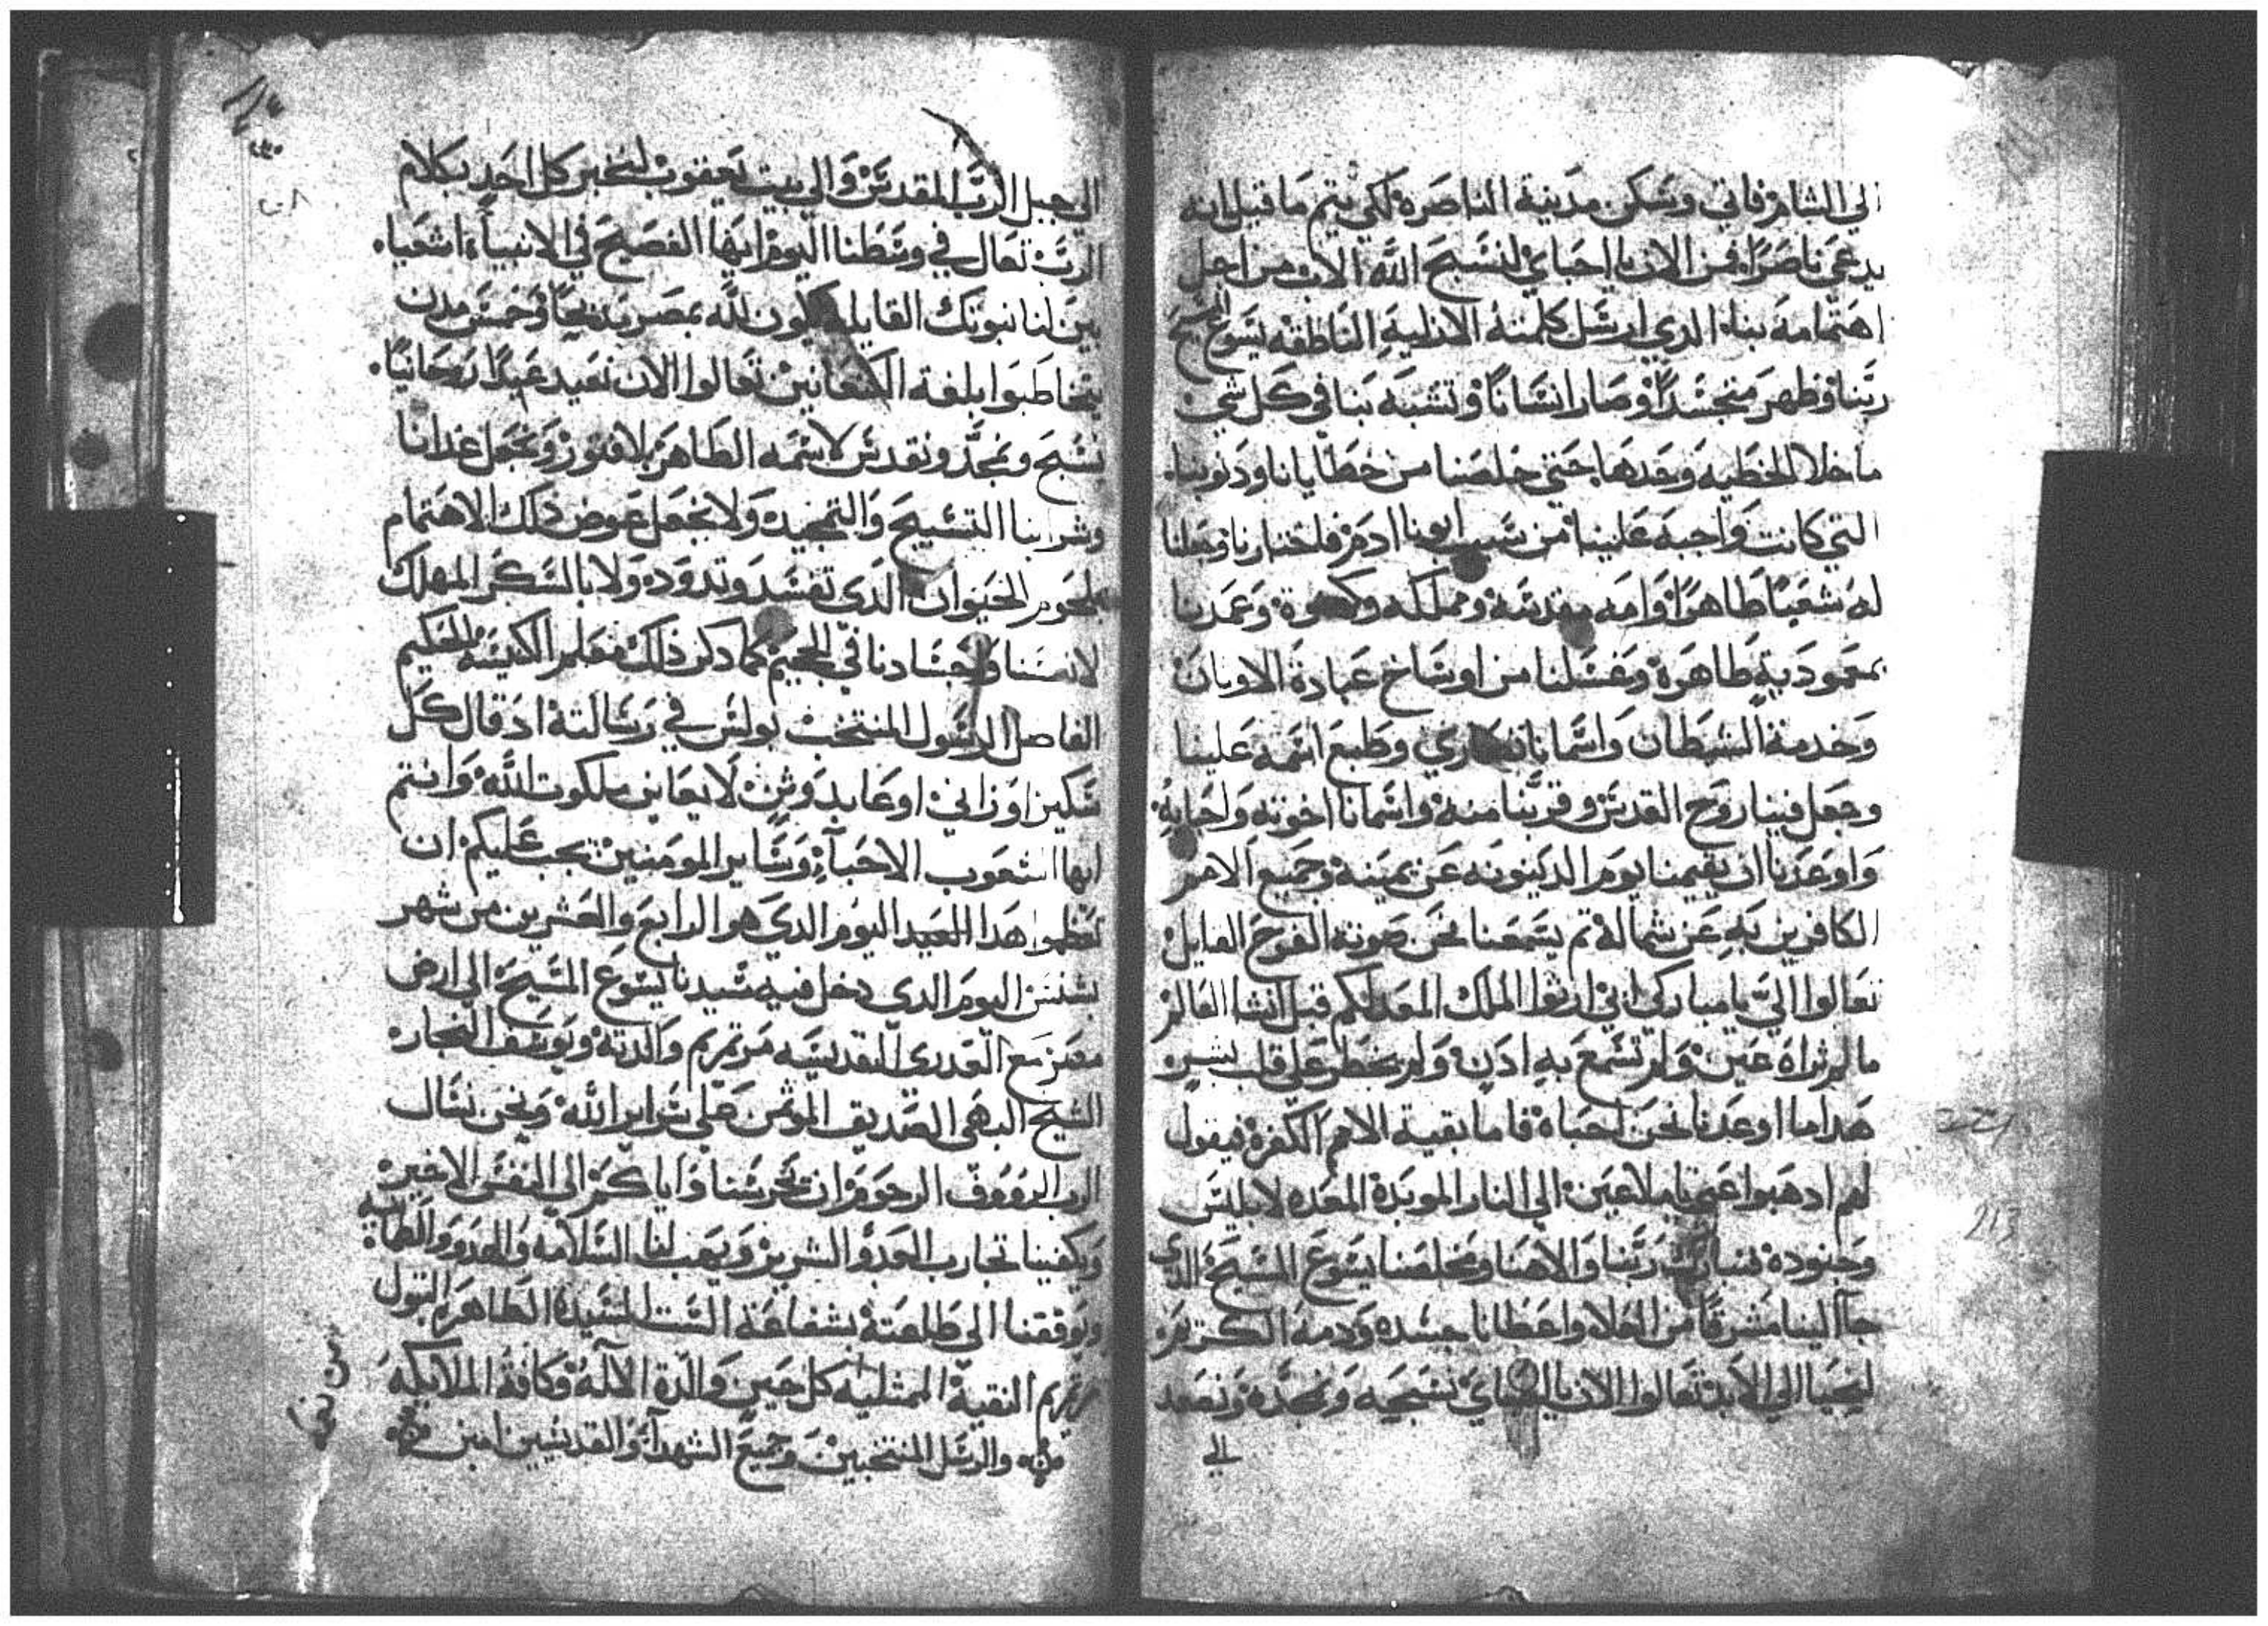 الي الشام فاتي وسكن مدينة الناصرة لكي يتم ما قيل انه
يدعي ناصرًا فمن الان يا احباي لنسبح الله الاب من اجل
اهتمامه بنا الدي ارسل كلمته الازلية الناطقه يسوع المسيح
ربنا وظهر متجسدًا وصار انسانًا وتشبه بنا في كل شي
ما خلا الخطيه وحدها حتي خلصنا من خطايانا ودنوبنا
التي كانت واجبه علينا من سبب ابونا ادم فاختارنا وجعلنا
له شعبًا طاهرًا وامه مقدسه ومملكه وكهنوة وعمدنا
بمعمودية طاهرة وغسلنا من اوساخ عبادة الاوبان
وخدمة الشيطان واسمانا نصاري وطبع اسمه علينا
وجعل فينا روح القدس وقربنا منه واسمانا اخوته واحبايه
واوعدنا ان يقيمنا يوم الدينونه عن يمينه وجميع الامم
الكافرين به عن شماله تم يسمعنا نحن صوته الفرح القايل
تعالوا الي يا مباركي ابي ارثوا الملك المعد لكم قبل انشا العالم
ما لم تراه عين ولم تسمع به ادن ولم يخطر علي قلب بشر
هدا ما اوعدنا نحن احباه فاما بقية الامم الكفرة فيقول
لهم ادهبوا عني يا ملاعين الي النار الموبدة المعده لابليس
وجنوده فتبارك ربنا والاهنا ومخلصنا يسوع المسيح الدي
جا الينا مشرقًا من العلا واعطانا جسده ودمه الكريم
لنحيا الي الابد تعالوا الان يا احباي نسبحه ونمجده ونصعد
الي
الي جبل الرب المقدس والي بيت يعقوب لنخبر كل احد بكلام
الرب تعال في وسطنا اليوم ايها الفصيح في الانبياء اشعيا
بين لنا نبوتك القايله يكون لله بمصر مدبحًا وخمس مدن
يتخاطبوا بلغة الكنعانيين تعالوا الان نعيد عيدًا روحانيًا
نسبح ونمجد ونقدس لاسمه الطاهر بلا فتور ونجعل غدانا
وشرابنا التسبيح والتمجيد ولا نجعل عوض ذلك الاهتمام
بلحوم الحيوان الدي تفسد وتدود ولا بالسكر المهلك
لانفسنا واجسادنا في الجحيم كما دكر ذلك معلم الكنيسه الحكيم
الفاصل الرسول المنتخب بولس في رسالته اد قال كل
سكير او زاني او عابد وثن لا يعاين ملكوت الله وانتم
ايها الشعوب الاحباء وساير المومنين يجب عليكم ان
تعظموا هدا العيد اليوم الدي هو الرابع والعشرين من شهر
بشنس اليوم الدي دخل فيه سيدنا يسوع المسيح الي ارض
مصر مع العدري القديسه مرتمريم والدته ويوسف النجار
الشيخ البهي الصديق الموتمن علي سراير الله ونحن نسال
الرب الرووف الرحوم ان يحرسنا واياكم الي النفس الاخير
ويكفينا تجارب العدو الشرير ويهب لنا السلامه والهدوو والطمانينه
ويوفقنا الي طاعته بشفاعة الست السيدة الطاهرة البتول
مرتمريم النقية الممتليه كل حين والدة الاله وكافة الملايكه
والرسل المنتخبين وجميع الشهدا والقديسين امين